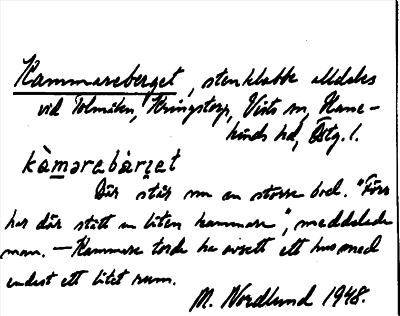 Kammareberget, stenklabbe alldeles
vid Tolmåken, Kringstorp, Vists sn, Hane-
kinds hd, Östg. l.
kàmərebàrget
Där står nu en större bod. "Förr
har där stått en liten kammare", meddelade
man. — Kammare torde ha avsett ett hus med
endast ett litet rum.
M. Nordlund 1948.